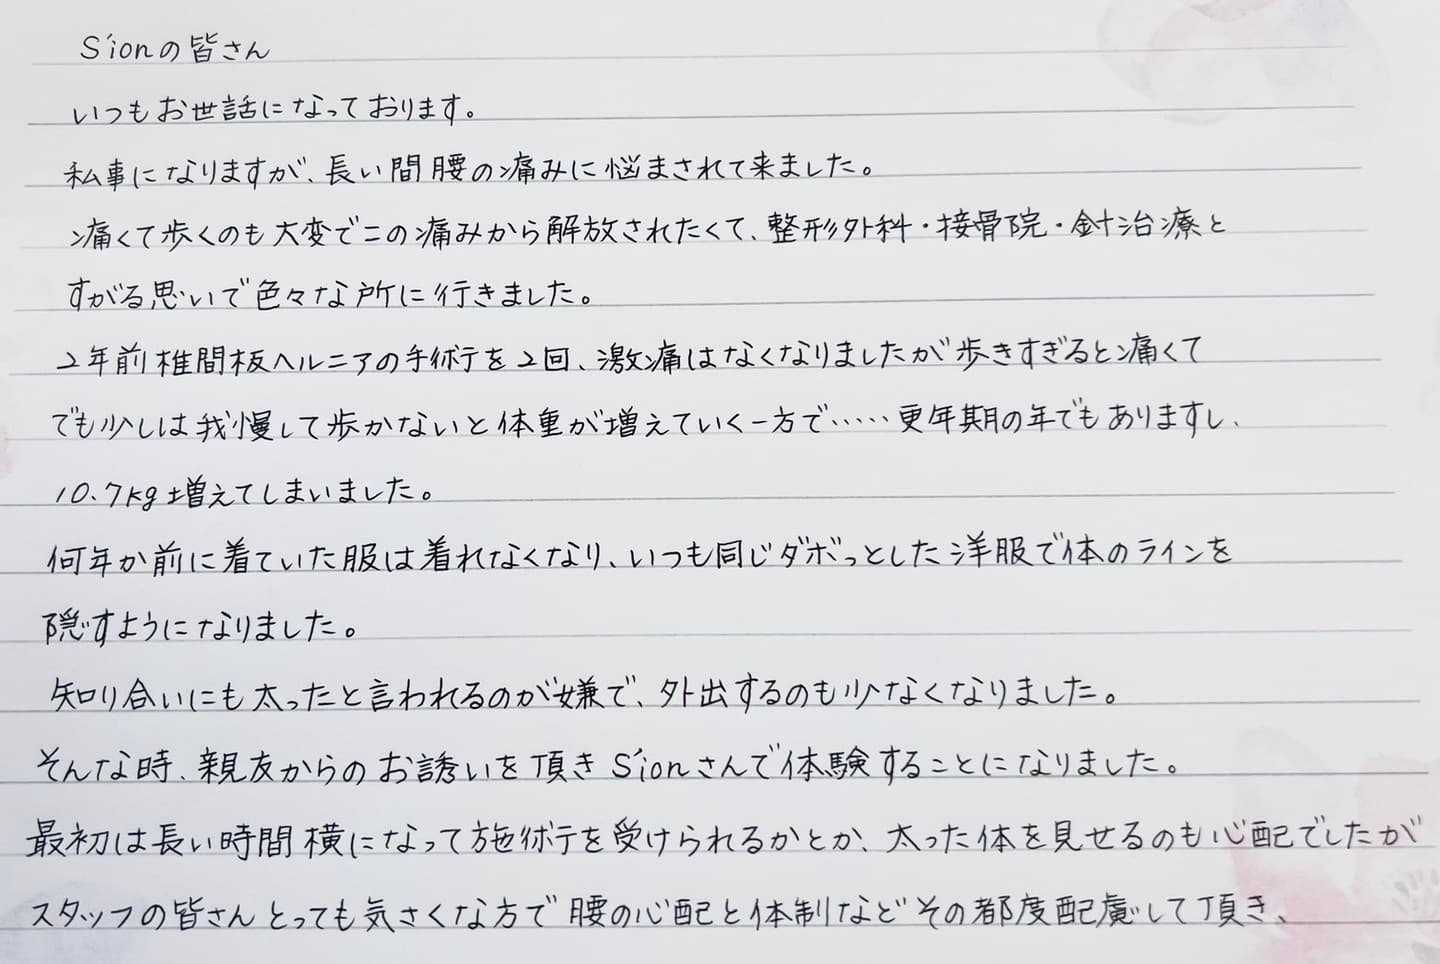 S'ionの皆さん
いつもお世話になっております。
私事になりますが、長い間腰の痛みに悩まされて来ました。
痛くて歩くのも大変でこの痛みから解放されたくて、整形外科・接骨院・針治療と
すがる思いで色々な所に行きました。
2年前椎間板ヘルニアの手術を2回、激痛はなくなりましたが歩きすぎると痛くて
でも少しは我慢して歩かないと体重が増えていく一方で……更年期の年でもありますし、
10.7kg増えてしまいました。
何年か前に着ていた服は着れなくなり、いつも同じダボっとした洋服で体のラインを
隠すようになりました。
知り合いにも太ったと言われるのが嫌で、外出するのも少なくなりました。
そんな時、親友からのお誘いを頂きS'ionさんで体験することになりました。
最初は長い時間横になって施術を受けられるかとか、太った体を見せるのも心配でしたが
スタッフの皆さんとっても気さくな方で腰の心配と体制などその都度配慮して頂き、